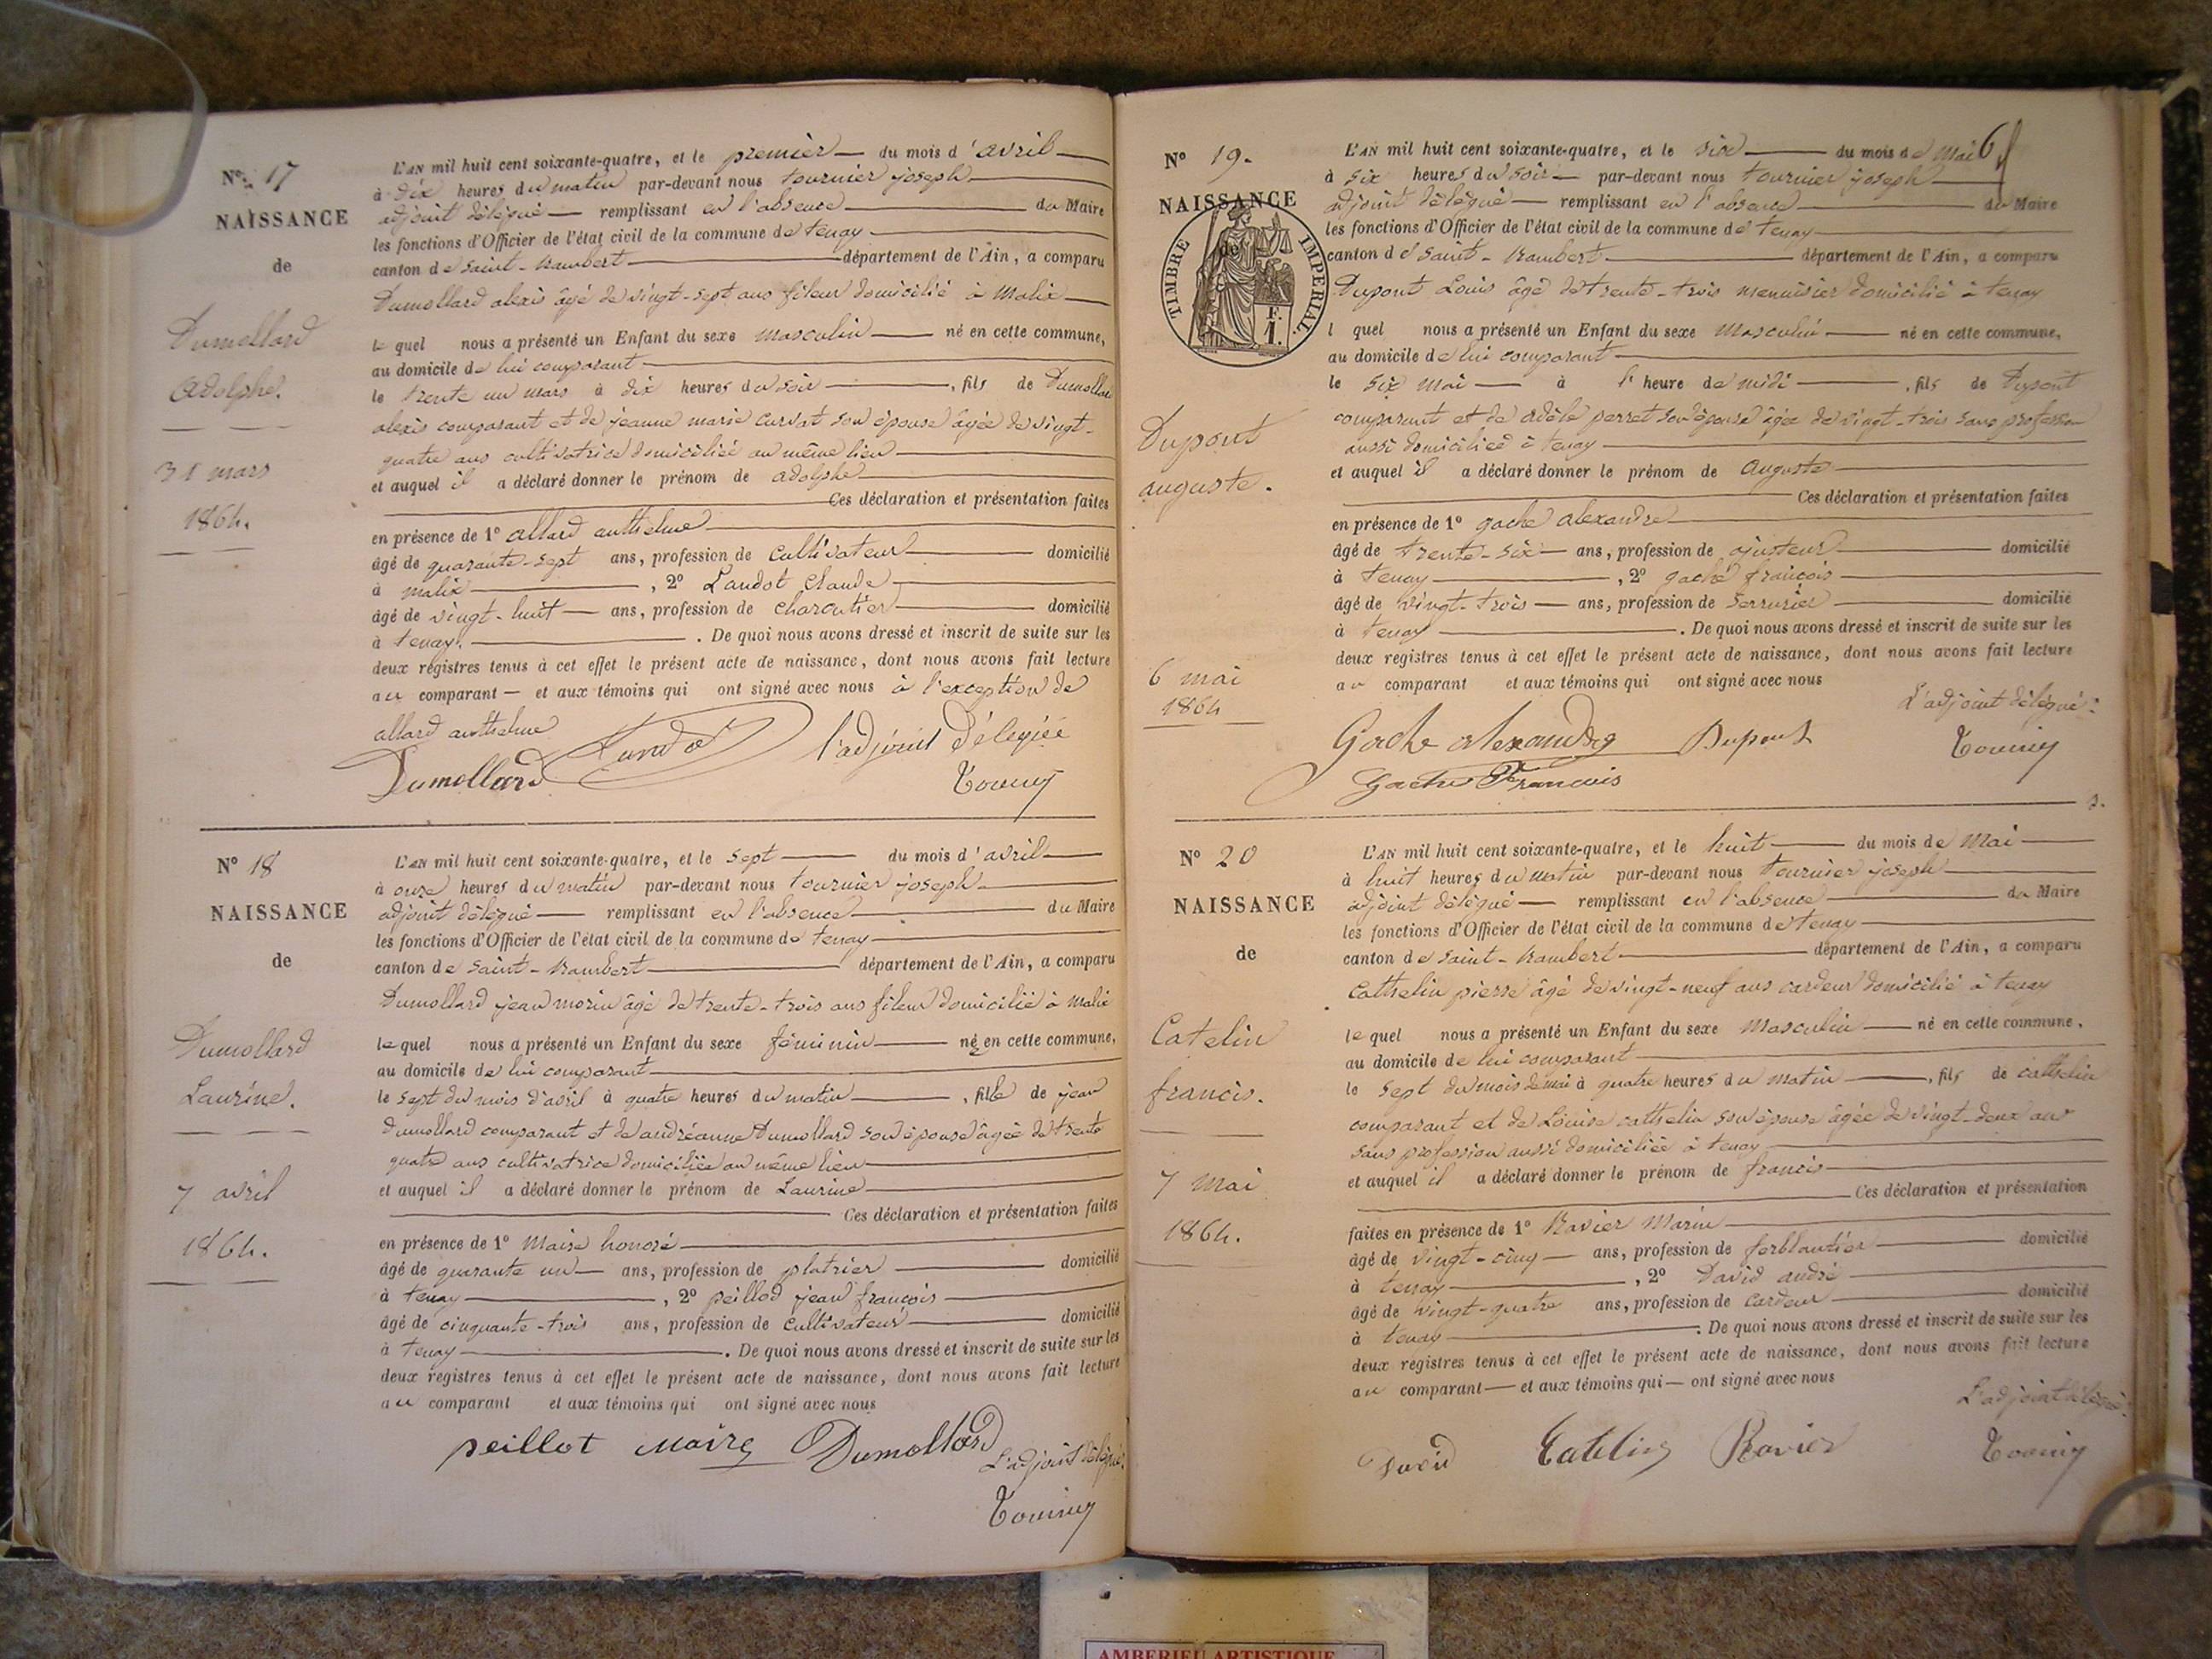 N° 17
NAISSANCE
de
Dumollard
adolphe.
31 mars
1864.
L'AN mil huit cent soixante-quatre, et le premier du mois d'avril
à dix heures du matin par-devant nous tournier joseph
adjoint délégué remplissant en l'absence du Maire
les fonctions d'Officier de l'état civil de la commune de tenay
canton de saint-Rambert département de l'Ain, a comparu
Dumollard alexis âgé de vingt-sept ans fileur domicilié à Malix
le quel nous a présenté un Enfant du sexe masculin né en cette commune,
au domicile de lui comparant
le trente un mars à dix heures du soir, fils de Dumollard
alexis comparant et de jeanne marie curvat son épouse âgée de vingt-
quatre ans cultivatrice domiciliée au même lieu
et auquel il a déclaré donner le prénom de adolphe
Ces déclaration et présentation faites
en présence de 1° allard anthelme
âgé de quarante-sept ans, profession de cultivateur domicilié
à malix, 2° Landot Claude
âgé de vingt-huit ans, profession de charcutier domicilié
à tenay. De quoi nous avons dressé et inscrit de suite sur les
deux registres tenus à cet effet le présent acte de naissance, dont nous avons fait lecture
au comparant et aux témoins qui ont signé avec nous à l'exception de
allard anthelme
l'adjoint Délégué
Dumollard
N° 18
NAISSANCE
de
Dumollard
Laurine.
7 avril
1864.
L'AN mil huit cent soixante-quatre, et le sept du mois d'avril
à onze heures du matin par-devant nous tournier joseph
adjoint délégué remplissant en l'absence du Maire
les fonctions d'Officier de l'état civil de la commune de tenay
canton de saint-Rambert département de l'Ain, a comparu
Dumollard jean marin âgé de trente-trois ans fileur domicilié à Malix
le quel nous a présenté un Enfant du sexe féminin née en cette commune,
au domicile de lui comparant
le sept du mois d'avril à quatre heures du matin, fille de jean
Dumollard comparant et de andréanne Dumollard son épouse âgée de trente
quatre ans cultivatrice domiciliée au même lieu
et auquel il a déclaré donner le prénom de Laurine
Ces déclaration et présentation faites
en présence de 1° Maire honoré
âgé de quarante un ans, profession de platrier domicilié
à tenay, 2° peillod jean françois
âgé de cinquante-trois ans, profession de cultivateur domicilié
à tenay. De quoi nous avons dressé et inscrit de suite sur les
deux registres tenus à cet effet le présent acte de naissance, dont nous avons fait lecture
au comparant et aux témoins qui ont signé avec nous
peillot Maire Dumollard L'adjoint délégué
N° 19.
NAISSANCE
de
TIMBRE IMPERIAL.
1 F.
Dupont
auguste.
6 mai
1864
6
L'AN mil huit cent soixante-quatre, et le six du mois de Mai
à six heures du soir par-devant nous tournier joseph
adjoint délégué remplissant en l'absence du Maire
les fonctions d'Officier de l'état civil de la commune de tenay
canton de saint-Rambert département de l'Ain, a comparu
Dupont Louis âgé de trente-trois menuisier domicilié à tenay
l quel nous a présenté un Enfant du sexe Masculin né en cette commune,
au domicile de lui comparant
le six mai à l'heure de midi, fils de Dupont
comparant et de adèle perret son épouse âgée de vingt-trois sans profession
aussi domiciliée à tenay
et auquel il a déclaré donner le prénom de Auguste
Ces déclaration et présentation faites
en présence de 1° gache alexandre
âgé de trente-six ans, profession de ajusteur domicilié
à tenay, 2° gaché françois
âgé de vingt-trois ans, profession de serrurier domicilié
à tenay. De quoi nous avons dressé et inscrit de suite sur les
deux registres tenus à cet effet le présent acte de naissance, dont nous avons fait lecture
au comparant et aux témoins qui ont signé avec nous
L'adjoint délégué.
Gache alexandre Dupont
Gache Francois
N° 20
NAISSANCE
de
Catelin
francis.
7 mai
1864.
L'AN mil huit cent soixante-quatre, et le huit du mois de Mai
à huit heures du matin par-devant nous tournier joseph
adjoint délégué remplissant en l'absence du Maire
les fonctions d'Officier de l'état civil de la commune de tenay
canton de saint-Rambert département de l'Ain, a comparu
Cathelin pierre âgé de vingt-neuf ans cardeur domicilié à tenay
le quel nous a présenté un Enfant du sexe Masculin né en cette commune,
au domicile de lui comparant
le sept du mois de mai à quatre heures du matin, fils de cathelin
comparant et de Louise cathelin son épouse âgée de vingt-deux ans
sans profession aussi domiciliée à tenay
et auquel il a déclaré donner le prénom de francis
Ces déclaration et présentation
faites en présence de 1° Ravier Marin
âgé de vingt-cinq ans, profession de ferblantier domicilié
à tenay, 2° David andré
âgé de vingt-quatre ans, profession de cardeur domicilié
à tenay. De quoi nous avons dressé et inscrit de suite sur les
deux registres tenus à cet effet le présent acte de naissance, dont nous avons fait lecture
au comparant et aux témoins qui ont signé avec nous
L'adjoint délégué.
David Catelin Ravier
AMBERIEU ARTISTIQUE